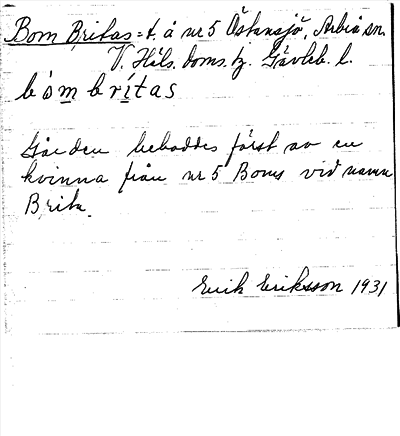 Bom Britas = t. å nr 5 Östansjö, Arbrå sn.
V. Häls. doms. tj. Gävleb. l.
bòm brítas
Gården beboddes först av en
kvinna från nr 5 Boms vid namn
Brita.
Erik Eriksson 1931